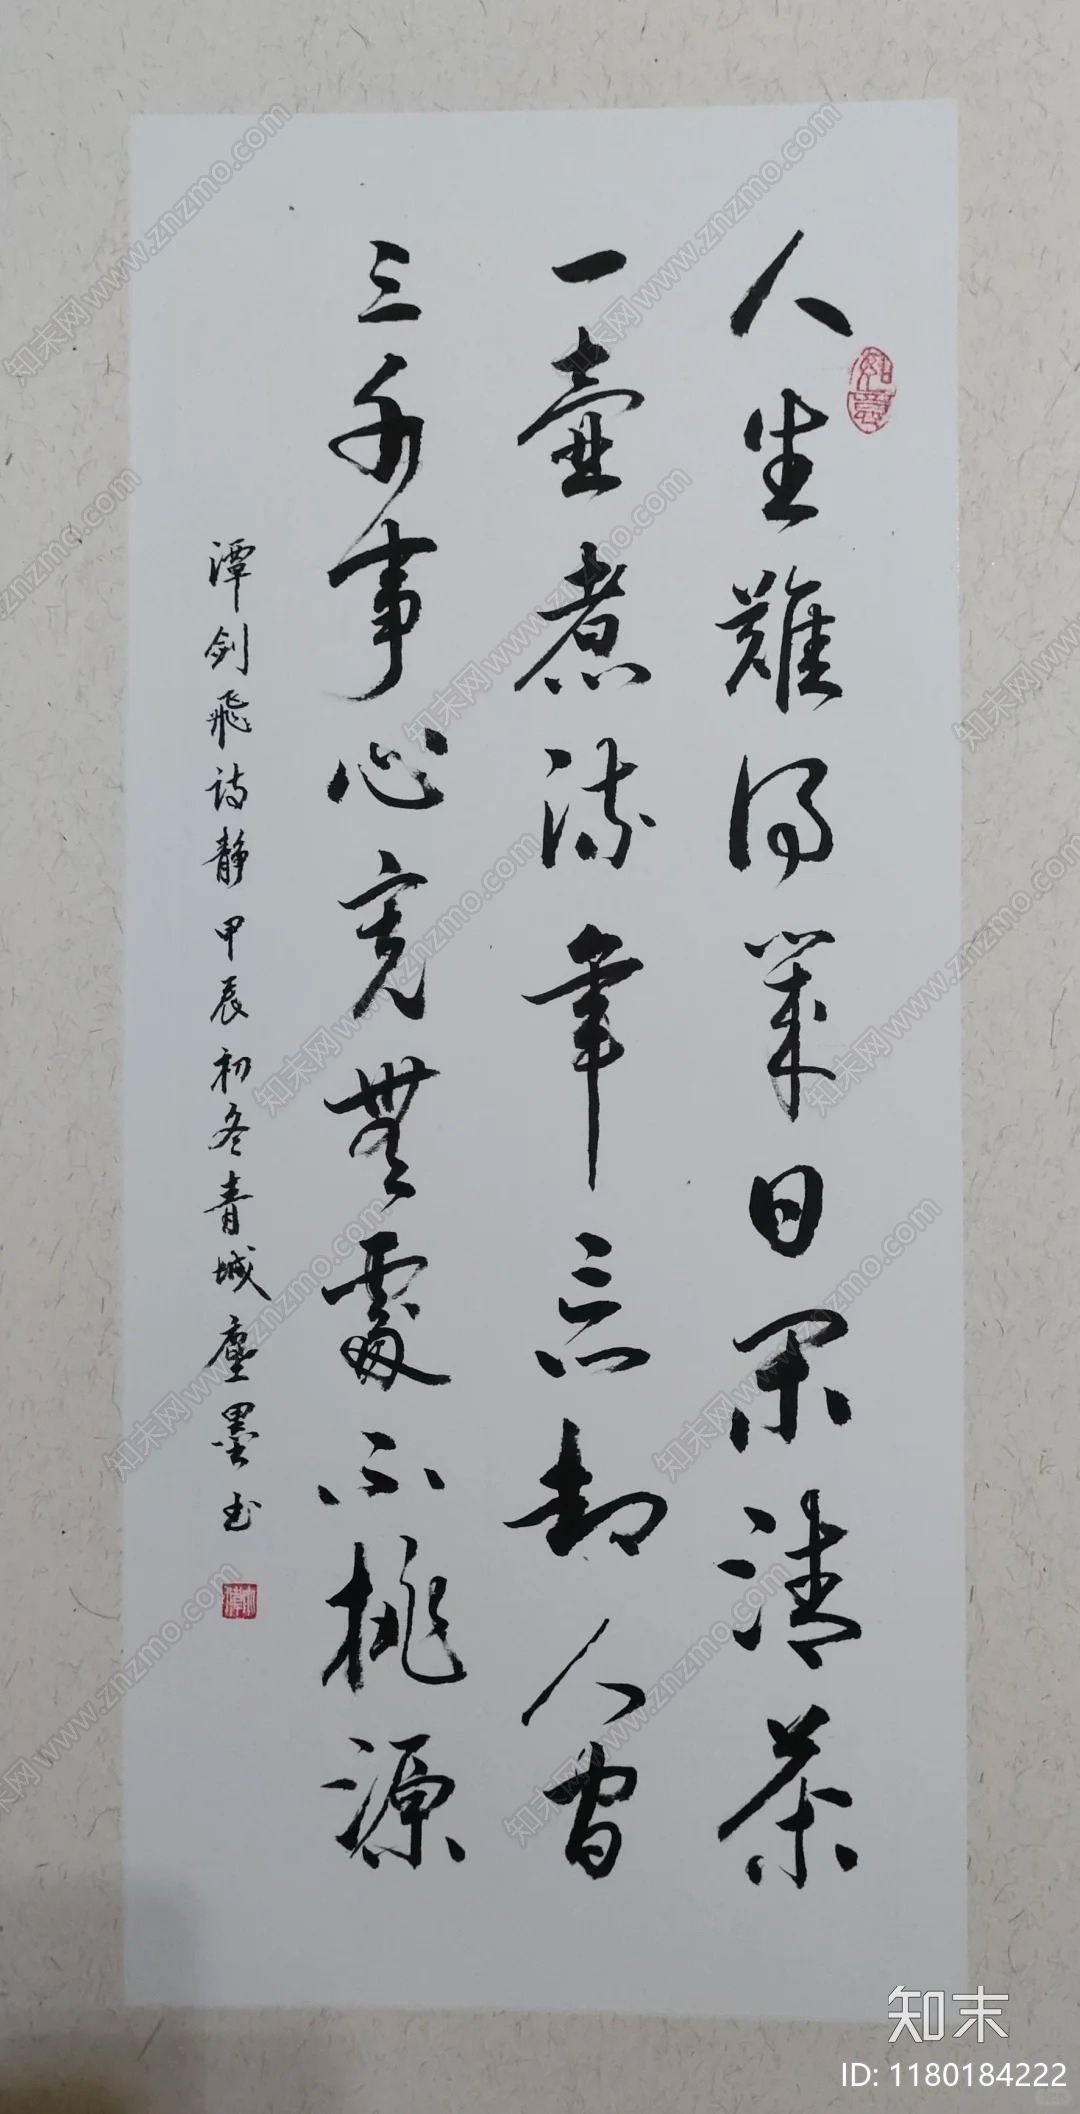 人生難得幾日閑清茶
一壺煮流年忘却人間
三千事心寬無處不桃源
潭劍飛詩静甲辰初冬青城塵墨书
如意
知末
ID: 1180184222
知末网www.znzmo.com